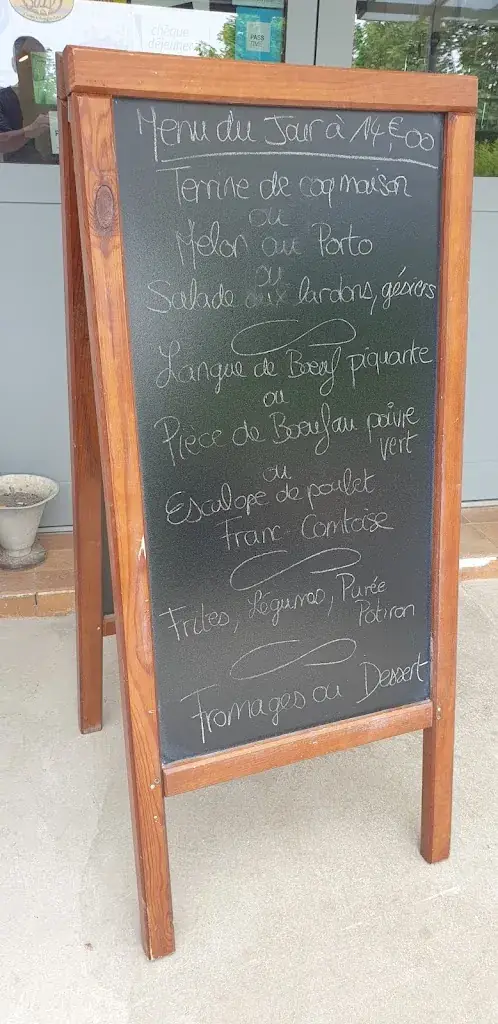 chèque
déjeuner
PASS
TIME
Menu du Jour à 14,€00
Terrine de coq maison
ou
Melon au Porto
ou
Salade aux lardons, gésiers
Langue de Boeuf piquante
ou
Pièce de Boeuf au poivre
vert
ou
Escalope de poulet
Franc-Comtoise
Frites, Légumes, Purée
Potiron
Fromages ou Dessert